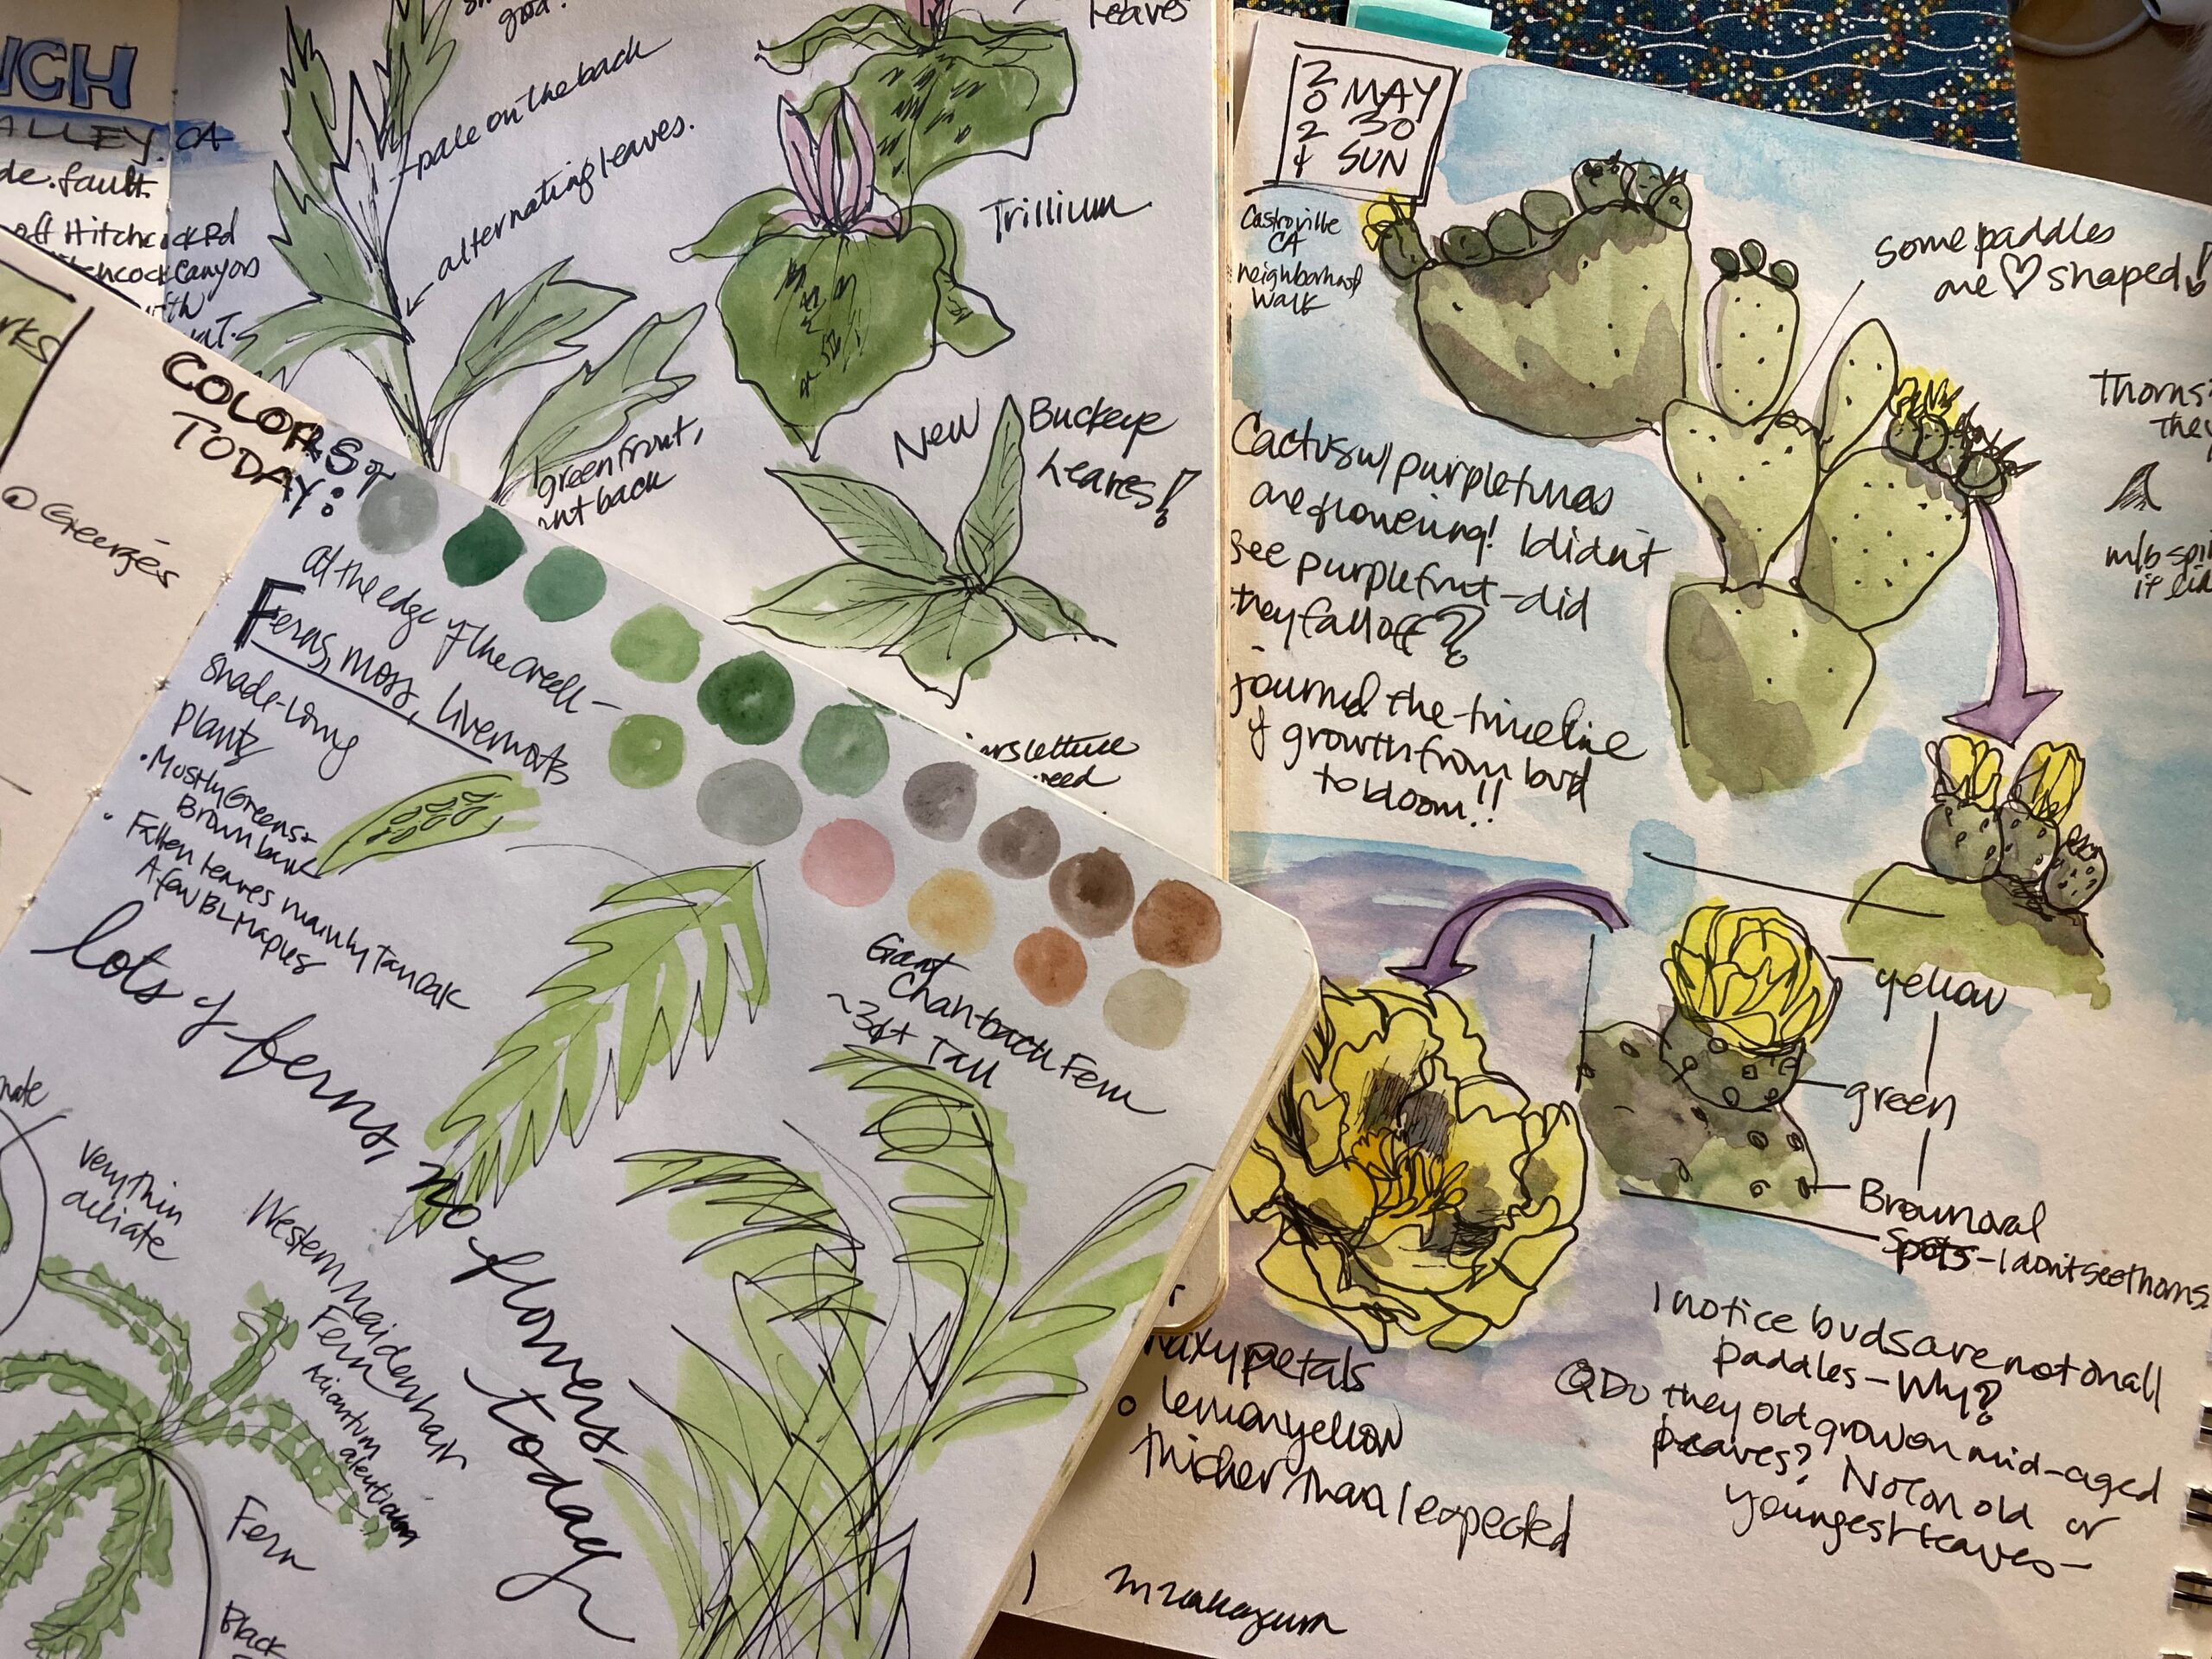 NCH
ALLEY, CA
de. fault.
off Hitchcock Rd
Hitchcock Canyon
with
good!
pale on the back
alternating leaves.
green front,
back
leaves
Trillium
New Buckeye
Leaves!
lettuce
2024
MAY
30
SUN
Castroville
CA
neighborhood
Walk
some paddles
are ♡ shaped!
Thorns?
they
Cactus w/ purple tunas
are flowering! I didn't
see purple fruit - did
they fall off?
journal the timeline
of growth from bud
to bloom!!
m/b
it
yellow
green
Brown oval
spots - I don't see thorns.
I notice buds are not on all
paddles - Why?
Q Do they out grow on mid-aged
leaves? Not on old or
youngest leaves -
waxy petals
lemon yellow
thicher than I expected
COLORS of
TODAY:
@ George's
at the edge of the creek -
Ferns, moss, liverworts
shade-loving
plants
• Mostly Greens +
Brown bark
• Fallen leaves mainly Tan Oak
A few BL Maples
lots of ferns,
no flowers
today
Giant
Chain Fern
~3ft Tall
very thin
Western Maidenhair
Fern
Fern
Black